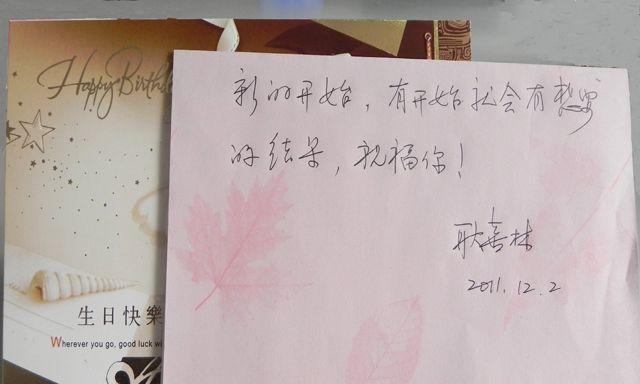 Happy Birth
新的开始，有开始就会有想要
的结果，祝福你！
耿喜林
2011.12.2
生日快樂
Wherever you go, good luck wi